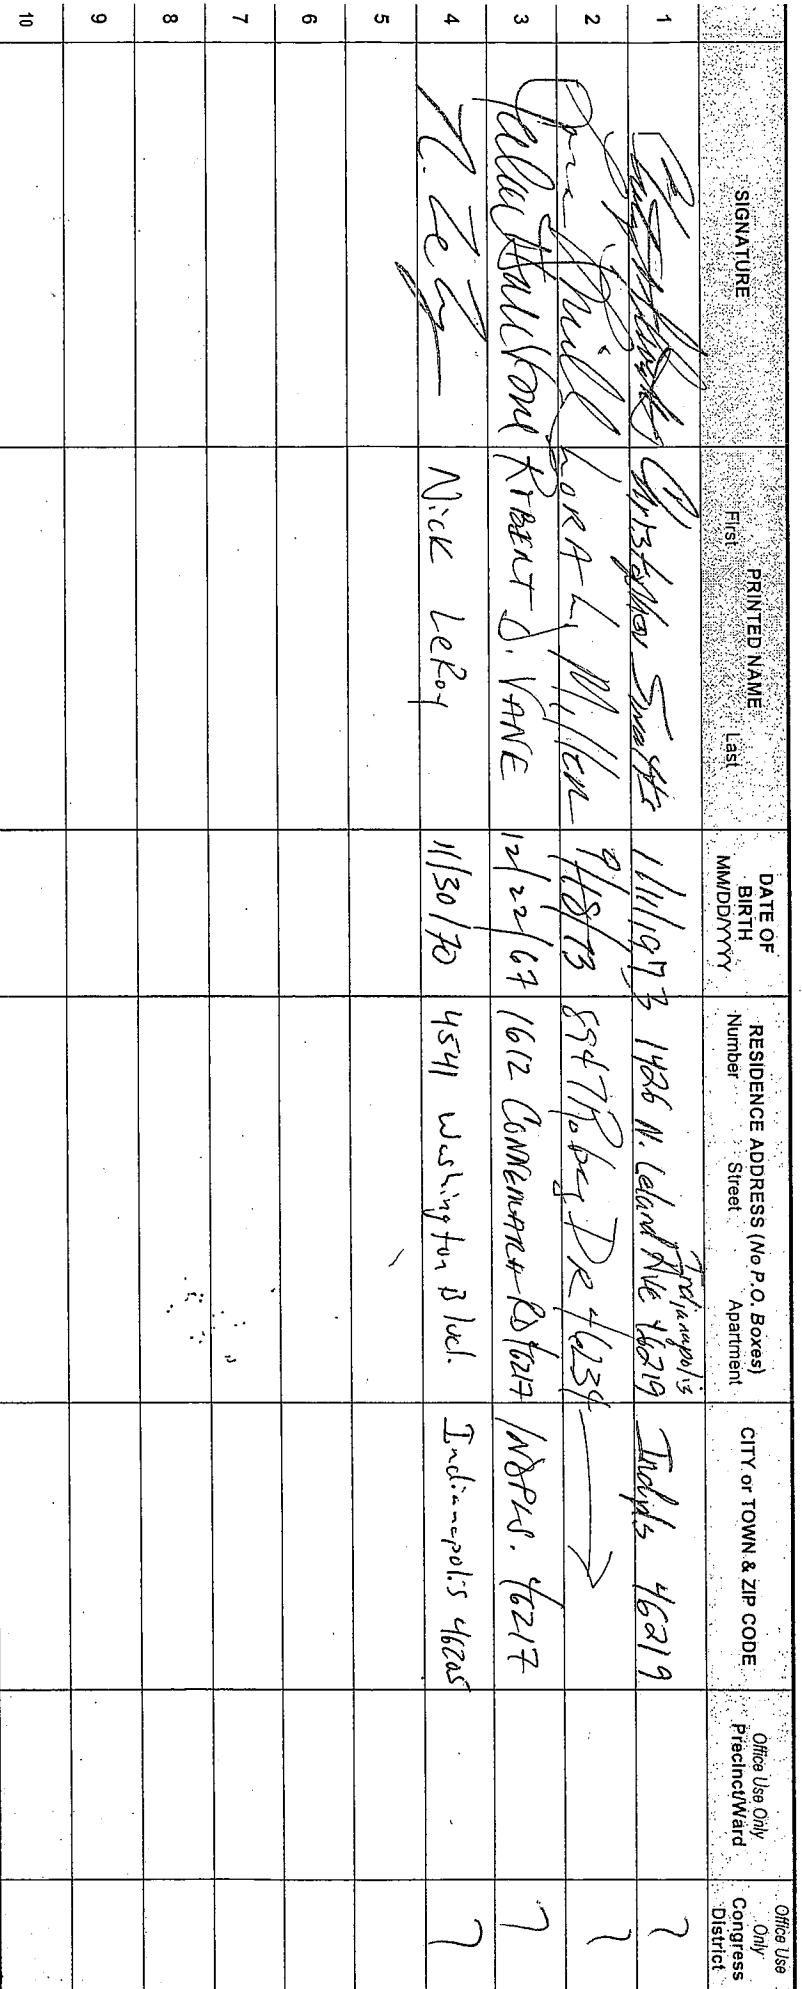 SIGNATURE
PRINTED NAME
First Last
DATE OF BIRTH
MM/DD/YYYY
RESIDENCE ADDRESS (No P.O. Boxes)
Number Street Apartment
CITY or TOWN & ZIP CODE
Office Use Only
Precinct/Ward
Office Use Only
Congress District
1 Christopher 11/11/1973 1426 N. Leland Ave 46219 Indianapolis Indpls 46219 7
2 LORA L. Miller 8947 Robey DR 46234 7
3 ROBERT J. VANE 12/22/67 1612 CONNEMARA RD 46217 INDPLS. 46217 7
4 Nick LeRoy 11/30/70 4541 Washington Blvd. Indianapolis 46205 7
5
6
7
8
9
10